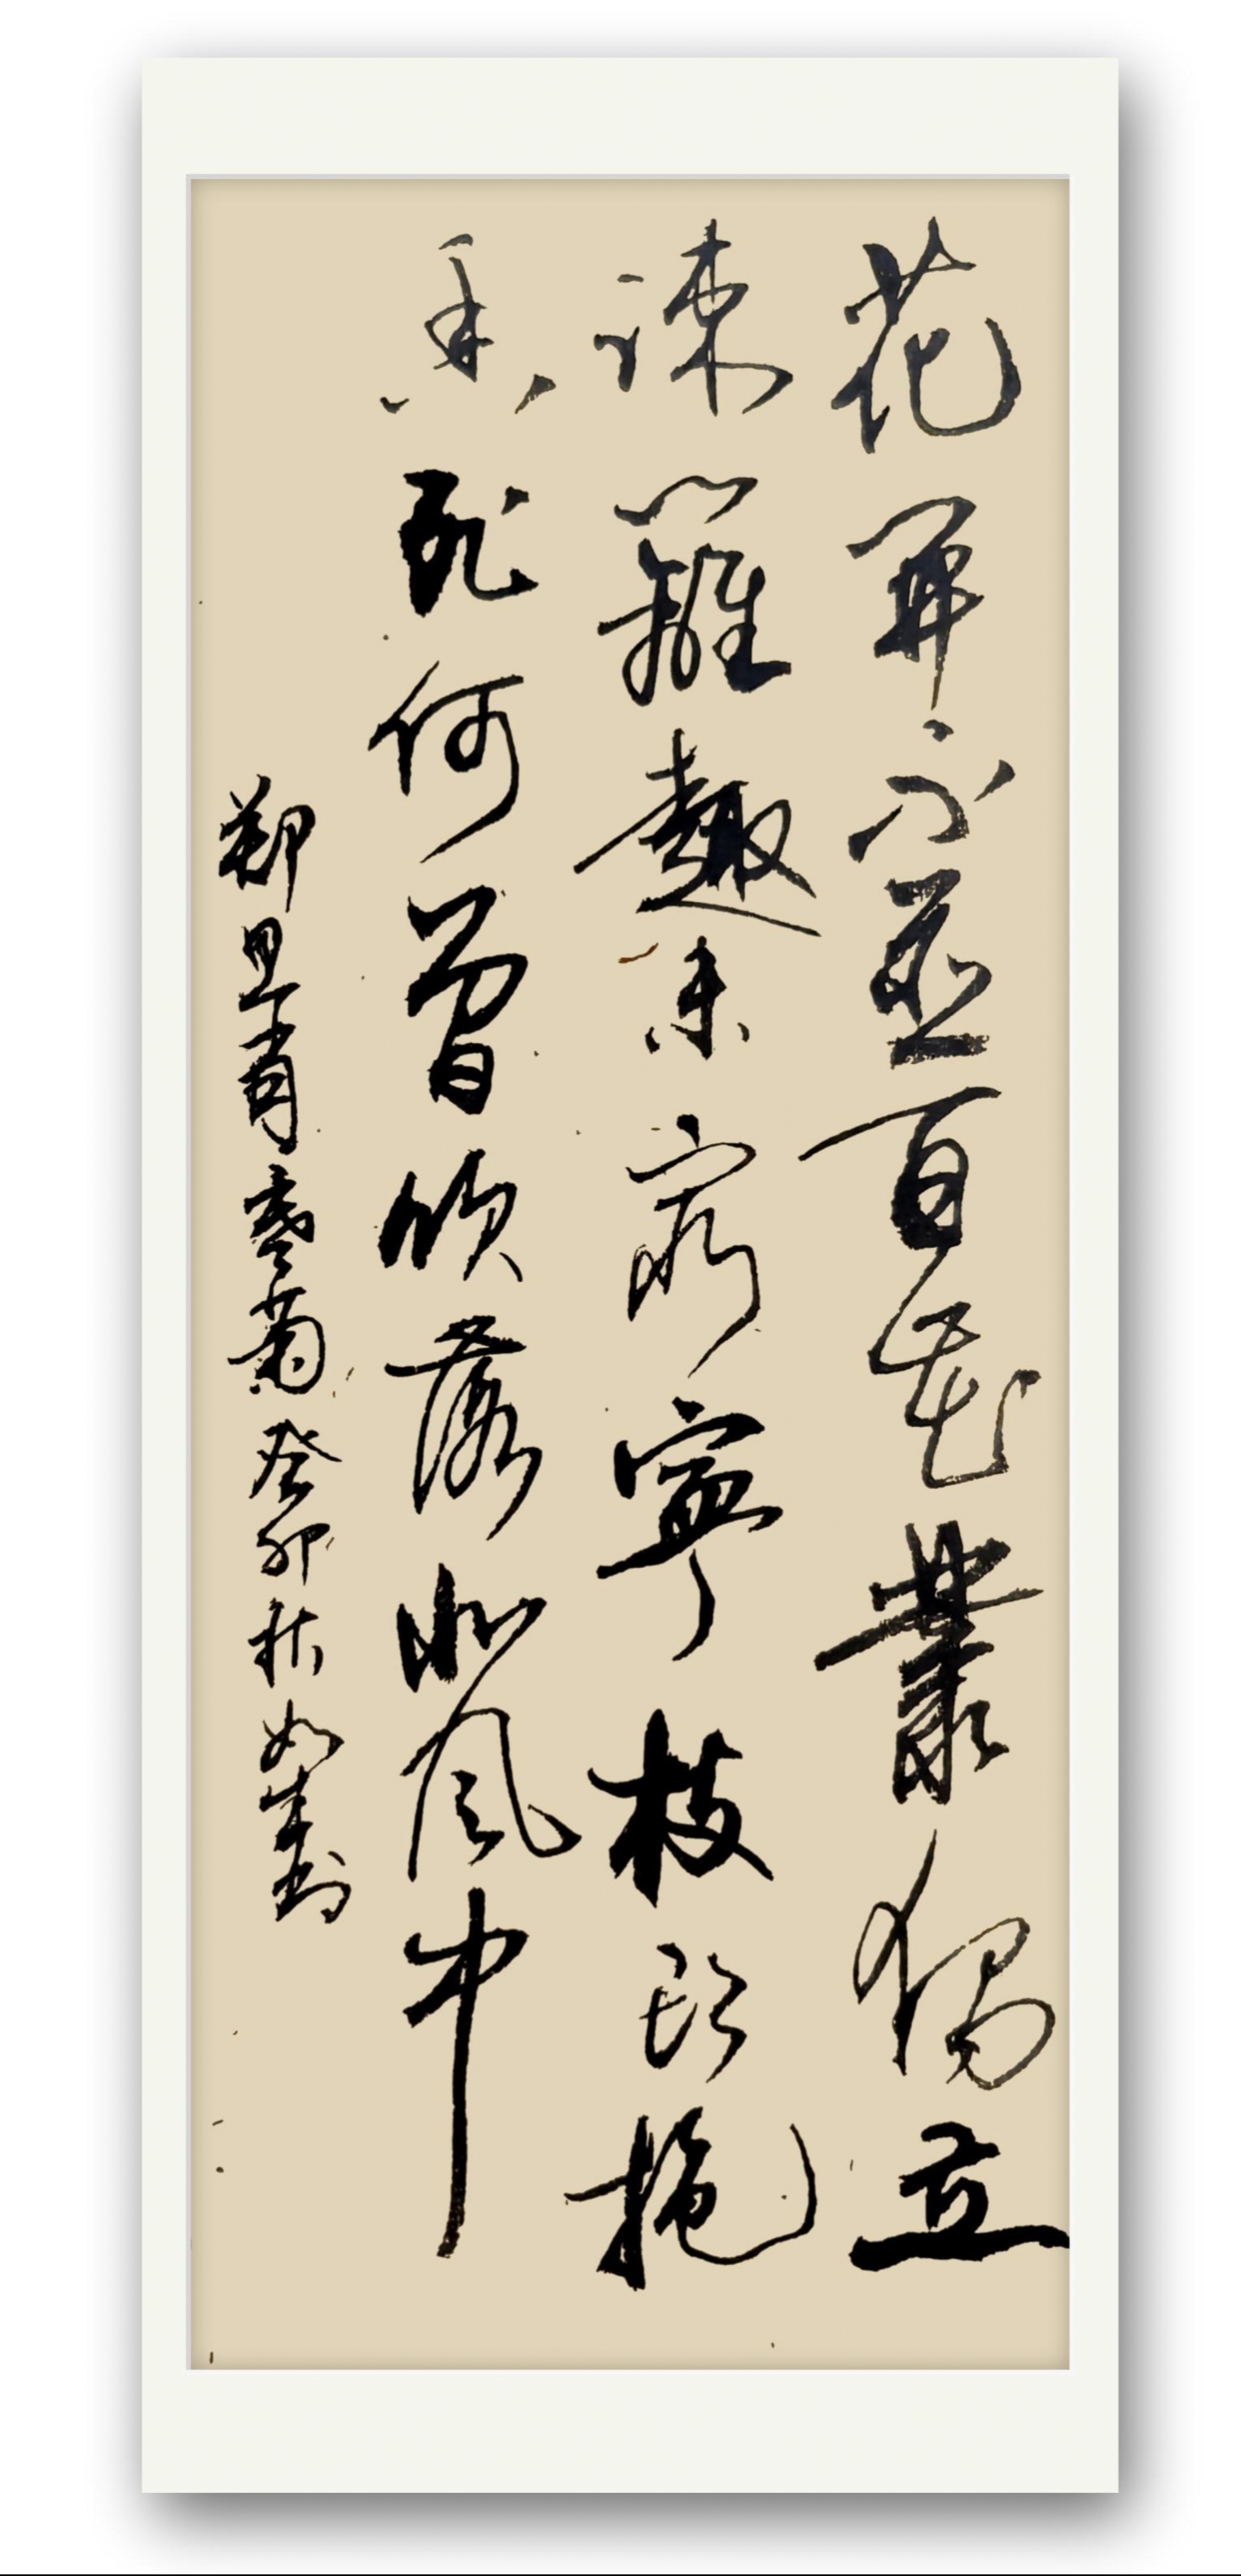 花開不並百花叢獨立
疎籬趣未窮寧枝頭抱
香死何曾吹落北風中
鄭思肖寒菊癸卯秋